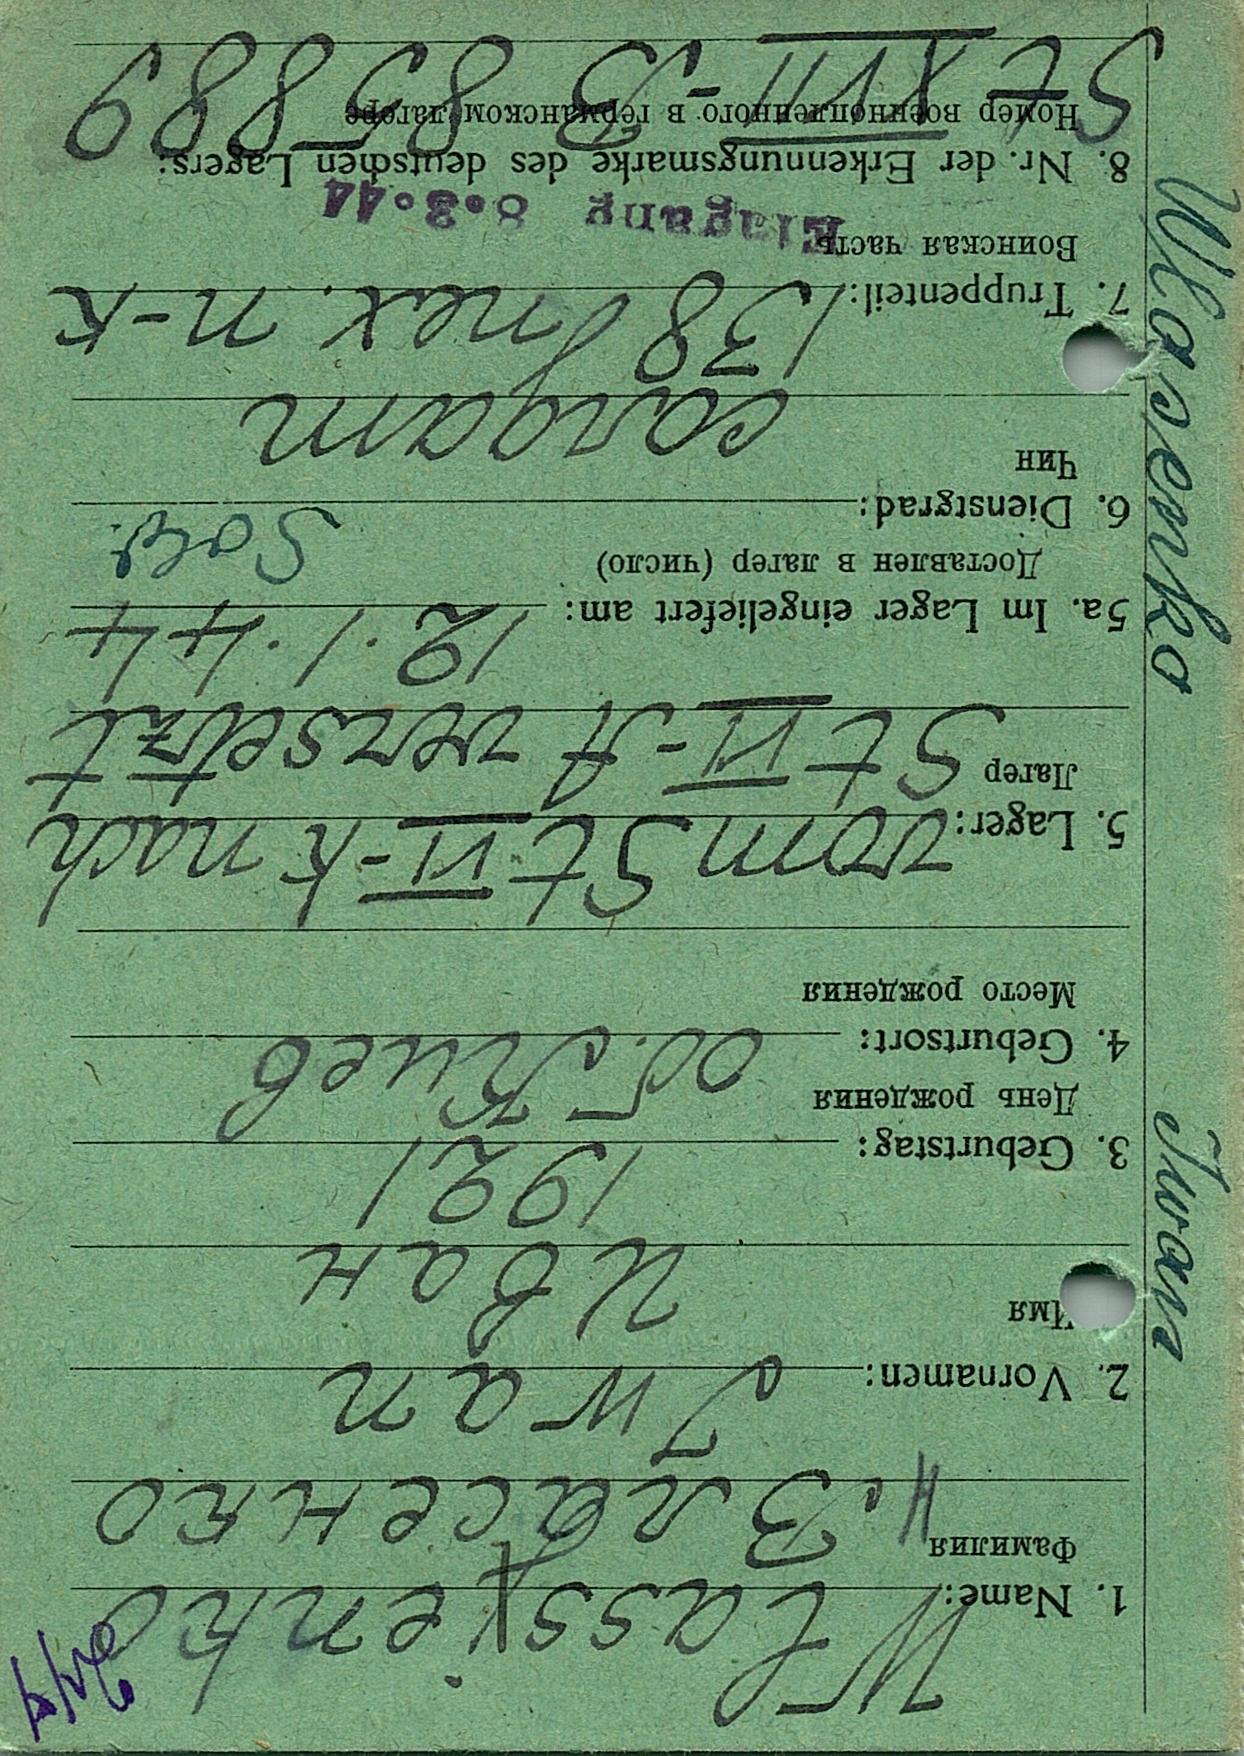 Wlasenko Iwan
1. Name: Wlassienko
Фамилия Власенко
2. Vornamen: Iwan
Имя Иван
3. Geburtstag: 1921
День рождения
4. Geburtsort: об. Киев
Место рождения
5. Lager: vom St VI-K nach
Лагер St VI-A versetzt
5a. Im Lager eingeliefert am: 12.1.44
Доставлен в лагер (число)
6. Dienstgrad: Sow.
Чин солдат
7. Truppenteil: 138 мех. п-к
Воинская часть
Eingang 8.3.44
8. Nr. der Erkennungsmarke des deutschen Lagers:
Номер военнопленного в германском лагере
St XVII-B 85889